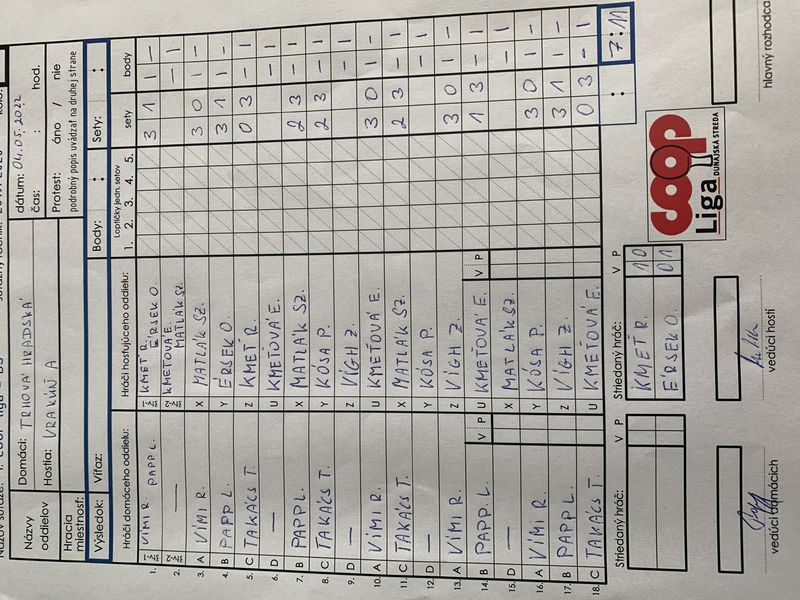 Názvy oddielov
Domáci: TRHOVÁ HRADSKÁ
Hostia: VRAKÚŇ A
Hracia miestnosť:
dátum: 04.05.2022
čas: : hod.
Protest: áno / nie
podrobný popis uvádzať na druhej strane
Výsledok: Víťaz: Body: : Sety: :
Hráči domáceho oddielu: Hráči hosťujúceho oddielu: Loptičky jedn. setov 1. 2. 3. 4. 5. sety body
1. VÍMI R. PAPP L. ÉRSEK O. 3 1 1 -
2. — KMEŤOVÁ E. MATLÁK SZ. - 1
3. A VÍMI R. X MATLÁK SZ. 3 0 1 -
4. B PAPP L. Y ÉRSEK O. 3 1 1 -
5. C TAKÁCS T. Z KMEŤ R. 0 3 - 1
6. D — U KMEŤOVÁ E. - 1
7. B PAPP L. X MATLÁK SZ. 2 3 - 1
8. C TAKÁCS T. Y KÓSA P. 2 3 - 1
9. D — Z VÍGH Z. - 1
10. A VÍMI R. U KMEŤOVÁ E. 3 0 1 -
11. C TAKÁCS T. X MATLÁK SZ. 2 3 - 1
12. D — Y KÓSA P. - 1
13. A VÍMI R. Z VÍGH Z. 3 0 1 -
14. B PAPP L. V P U KMEŤOVÁ E. V P 1 3 - 1
15. D — X MATLÁK SZ. - 1
16. A VÍMI R. Y KÓSA P. 3 0 1 -
17. B PAPP L. Z VÍGH Z. 3 1 1 -
18. C TAKÁCS T. U KMEŤOVÁ E. 0 3 - 1
: 7:11
Striedaný hráč: V P
Striedaný hráč: V P
KMEŤ R. 1 0
ÉRSEK O. 0 1
coop
Liga DUNAJSKÁ STREDA
vedúci domácich
vedúci hostí
hlavný rozhodca